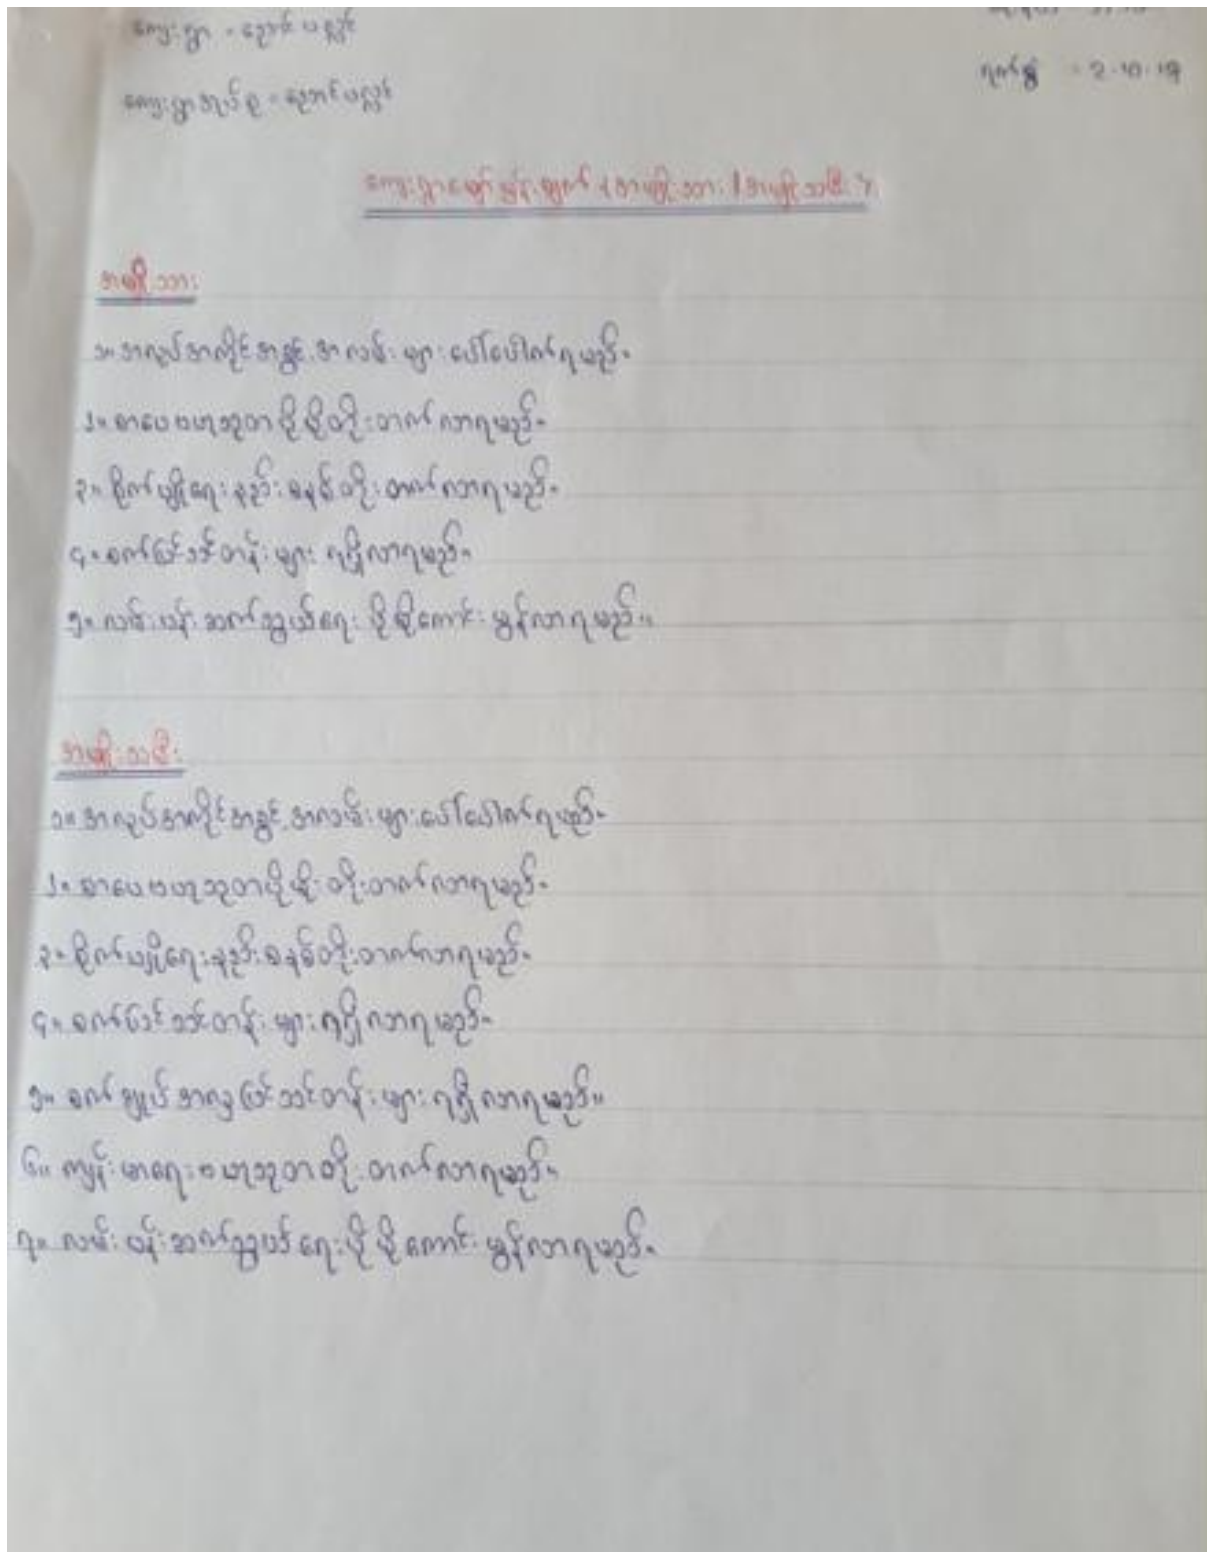 ကျေးရွာ - ညောင်ပလ္လင်
ကျေးရွာအုပ်စု - ညောင်ပလ္လင်
ရက်စွဲ - 2.10.19
ကျေးရွာမျှော်မှန်းချက် (အမျိုးသား / အမျိုးသမီး)
အမျိုးသား
၁။ အလုပ်အကိုင်အခွင့်အလမ်းများပေါ်ပေါက်ရမည်။
၂။ စာပေဗဟုသုတပိုမိုတိုးတက်လာရမည်။
၃။ စိုက်ပျိုးရေးနည်းစနစ်တိုးတက်လာရမည်။
၄။ စက်ပြင်သင်တန်းများ ရရှိလာရမည်။
၅။ လမ်းပန်းဆက်သွယ်ရေး ပိုမိုကောင်းမွန်လာရမည်။
အမျိုးသမီး
၁။ အလုပ်အကိုင်အခွင့်အလမ်းများပေါ်ပေါက်ရမည်။
၂။ စာပေဗဟုသုတပိုမိုးတိုးတက်လာရမည်။
၃။ စိုက်ပျိုးရေးနည်းစနစ်တိုးတက်လာရမည်။
၄။ စက်ပြင်သင်တန်းများရရှိလာရမည်။
၅။ စက်ချုပ်အလှပြင်သင်တန်းများရရှိလာရမည်။
၆။ ကျန်းမာရေးဗဟုသုတတိုးတက်လာရမည်။
၇။ လမ်းပန်းဆက်သွယ်ရေးပိုမိုကောင်းမွန်လာရမည်။